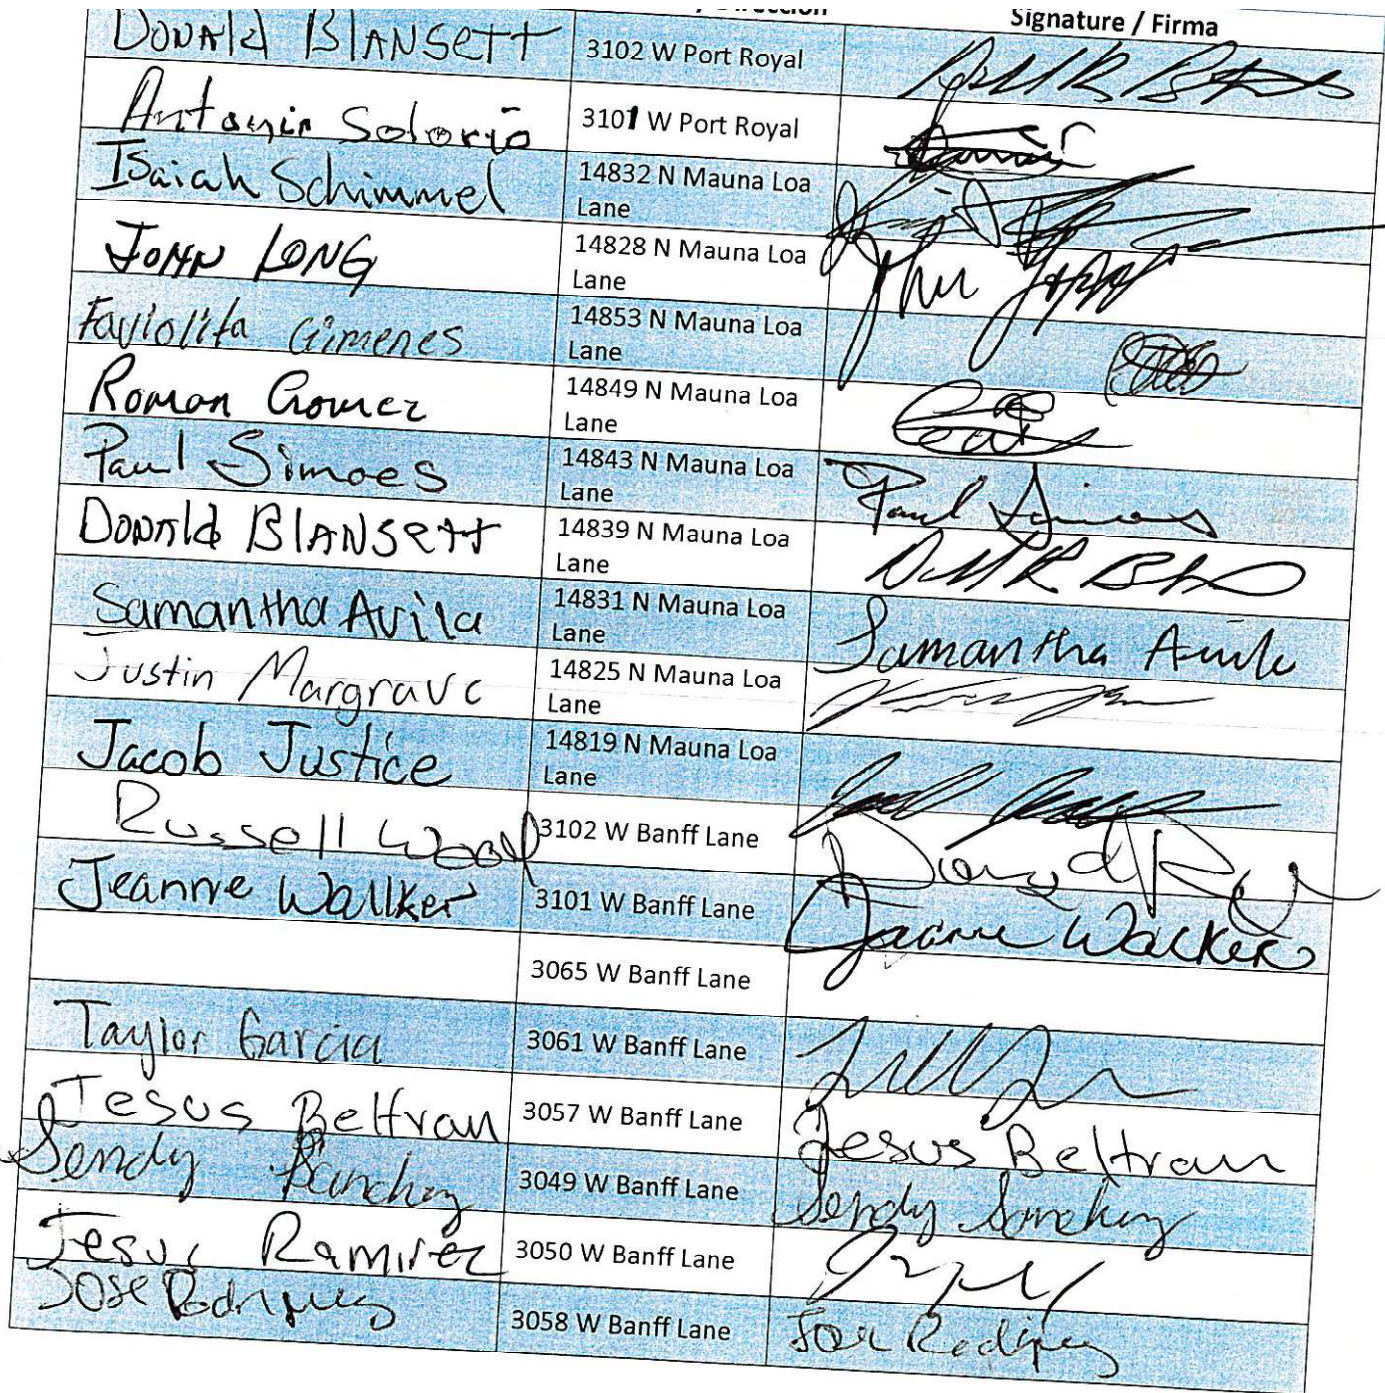 Signature / Firma
Donald Blansett 3102 W Port Royal
Antonio Solorio 3101 W Port Royal
Isaiah Schimmel 14832 N Mauna Loa Lane
John Long 14828 N Mauna Loa Lane John
Faviolita Gimenes 14853 N Mauna Loa Lane
Roman Gomez 14849 N Mauna Loa Lane
Paul Simoes 14843 N Mauna Loa Lane Paul Simoes
Donald Blansett 14839 N Mauna Loa Lane
Samantha Avila 14831 N Mauna Loa Lane Samantha Avila
Justin Margrave 14825 N Mauna Loa Lane
Jacob Justice 14819 N Mauna Loa Lane
Russell Wood 3102 W Banff Lane
Jeanne Wallker 3101 W Banff Lane Jeanne Walker
3065 W Banff Lane
Taylor Garcia 3061 W Banff Lane
Jesus Beltran 3057 W Banff Lane Jesus Beltran
Sendy Sanchez 3049 W Banff Lane Sendy Sanchez
Jesus Ramirez 3050 W Banff Lane
Jose Rodriguez 3058 W Banff Lane Jose Rodriguez